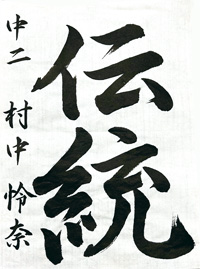 伝統
中二 村中怜奈